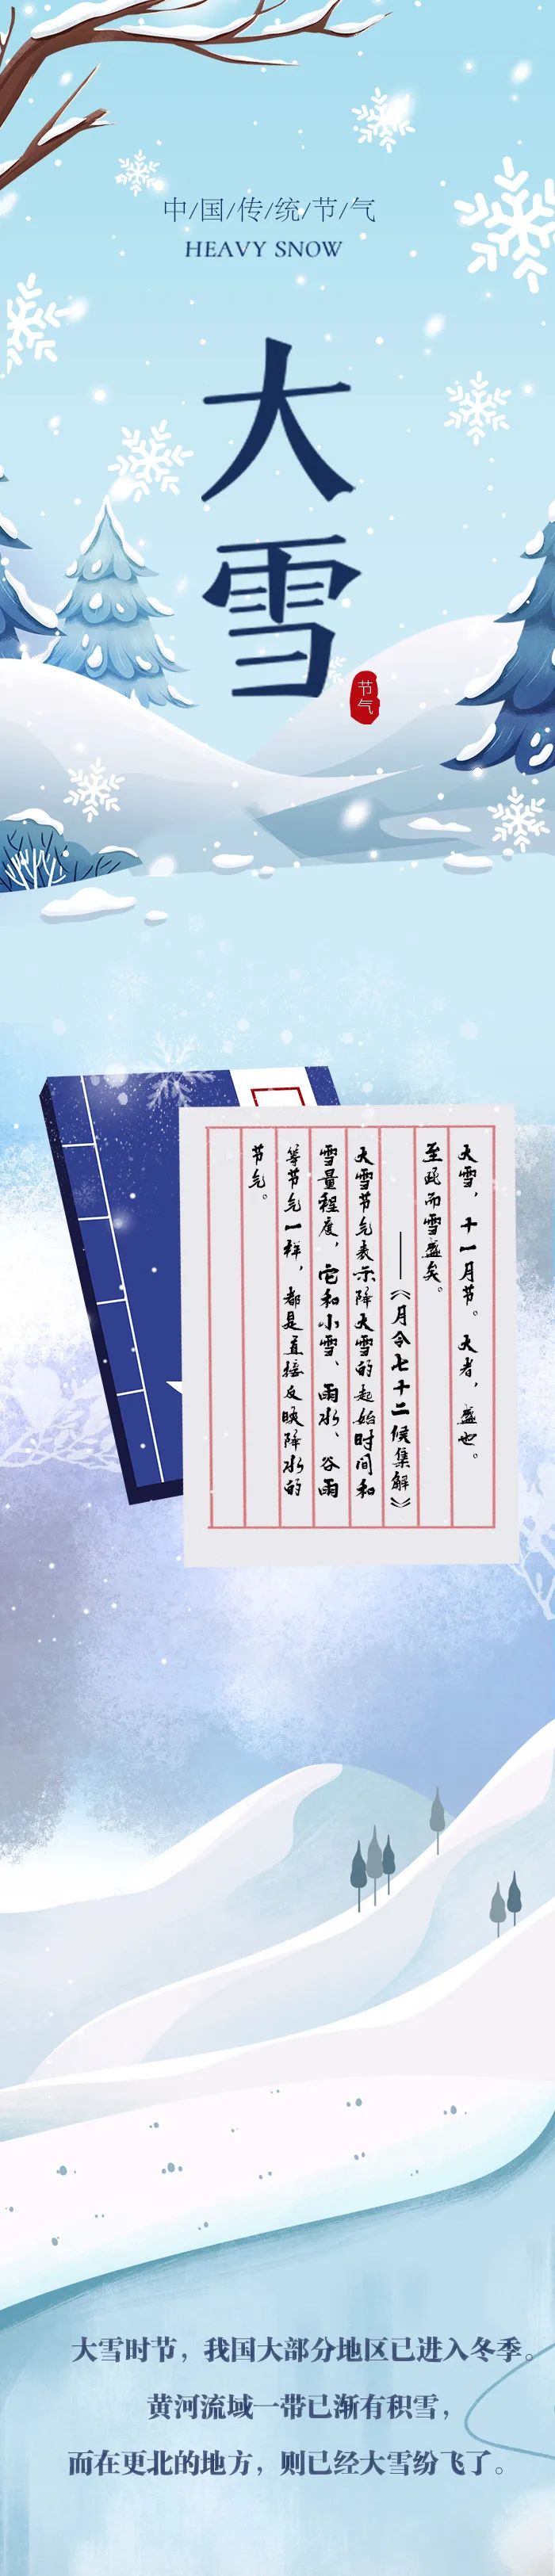 中/国/传/统/节/气
HEAVY SNOW
大
雪
节
气
大雪，十一月节。大者，盛也。
至此而雪盛矣。
——《月令七十二候集解》
大雪节气表示降大雪的起始时间和
雪量程度，它和小雪、雨水、谷雨
等节气一样，都是直接反映降水的
节气。
大雪时节，我国大部分地区已进入冬季。
黄河流域一带已渐有积雪，
而在更北的地方，则已经大雪纷飞了。